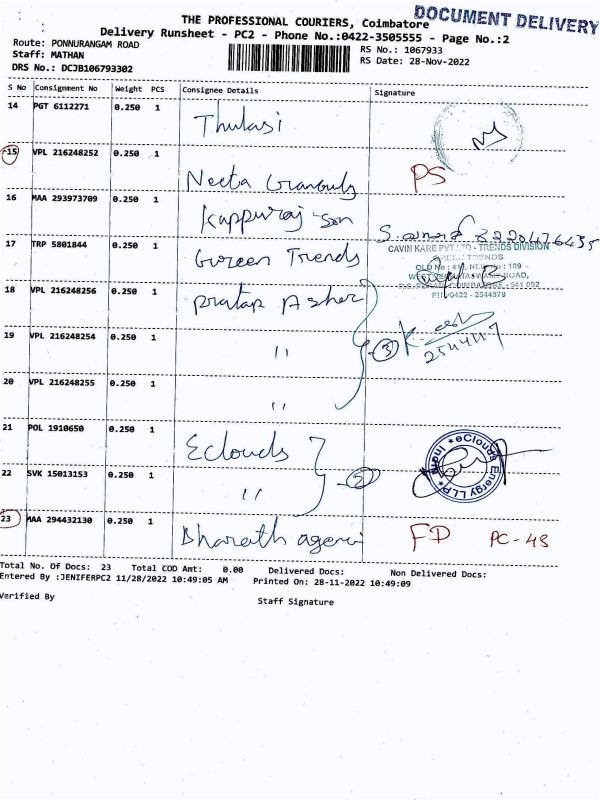 THE PROFESSIONAL COURIERS, Coimbatore
DOCUMENT DELIVERY
Delivery Runsheet - PC2 - Phone No.:0422-3505555 - Page No.:2
Route: PONNURANGAM ROAD
RS No.: 1067933
Staff: MATHAN
RS Date: 28-Nov-2022
DRS No.: DCJB106793302
S No Consignment No Weight PCS Consignee Details Signature
14 PGT 6112271 0.250 1 Thulasi
15 VPL 216248252 0.250 1 Neeta Ganguly PS
16 MAA 293973709 0.250 1 Kappuraj Son 8220476435
17 TRP 5801844 0.250 1 Green Trends
CAVIN KARE PVT LTD - TRENDS DIVISION
TRENDS
PH:0422 - 2544979
18 VPL 216248256 0.250 1 Pratap Asher
19 VPL 216248254 0.250 1 " 3 2544117
20 VPL 216248255 0.250 1 "
21 POL 1910650 0.250 1 Eclouds
eClouds Energy LLP
22 SVK 15013153 0.250 1 " 2
23 MAA 294432130 0.250 1 Bharath agenci FD PC-43
Total No. Of Docs: 23 Total COD Amt: 0.00 Delivered Docs: Non Delivered Docs:
Entered By :JENIFERPC2 11/28/2022 10:49:05 AM Printed On: 28-11-2022 10:49:09
Verified By
Staff Signature